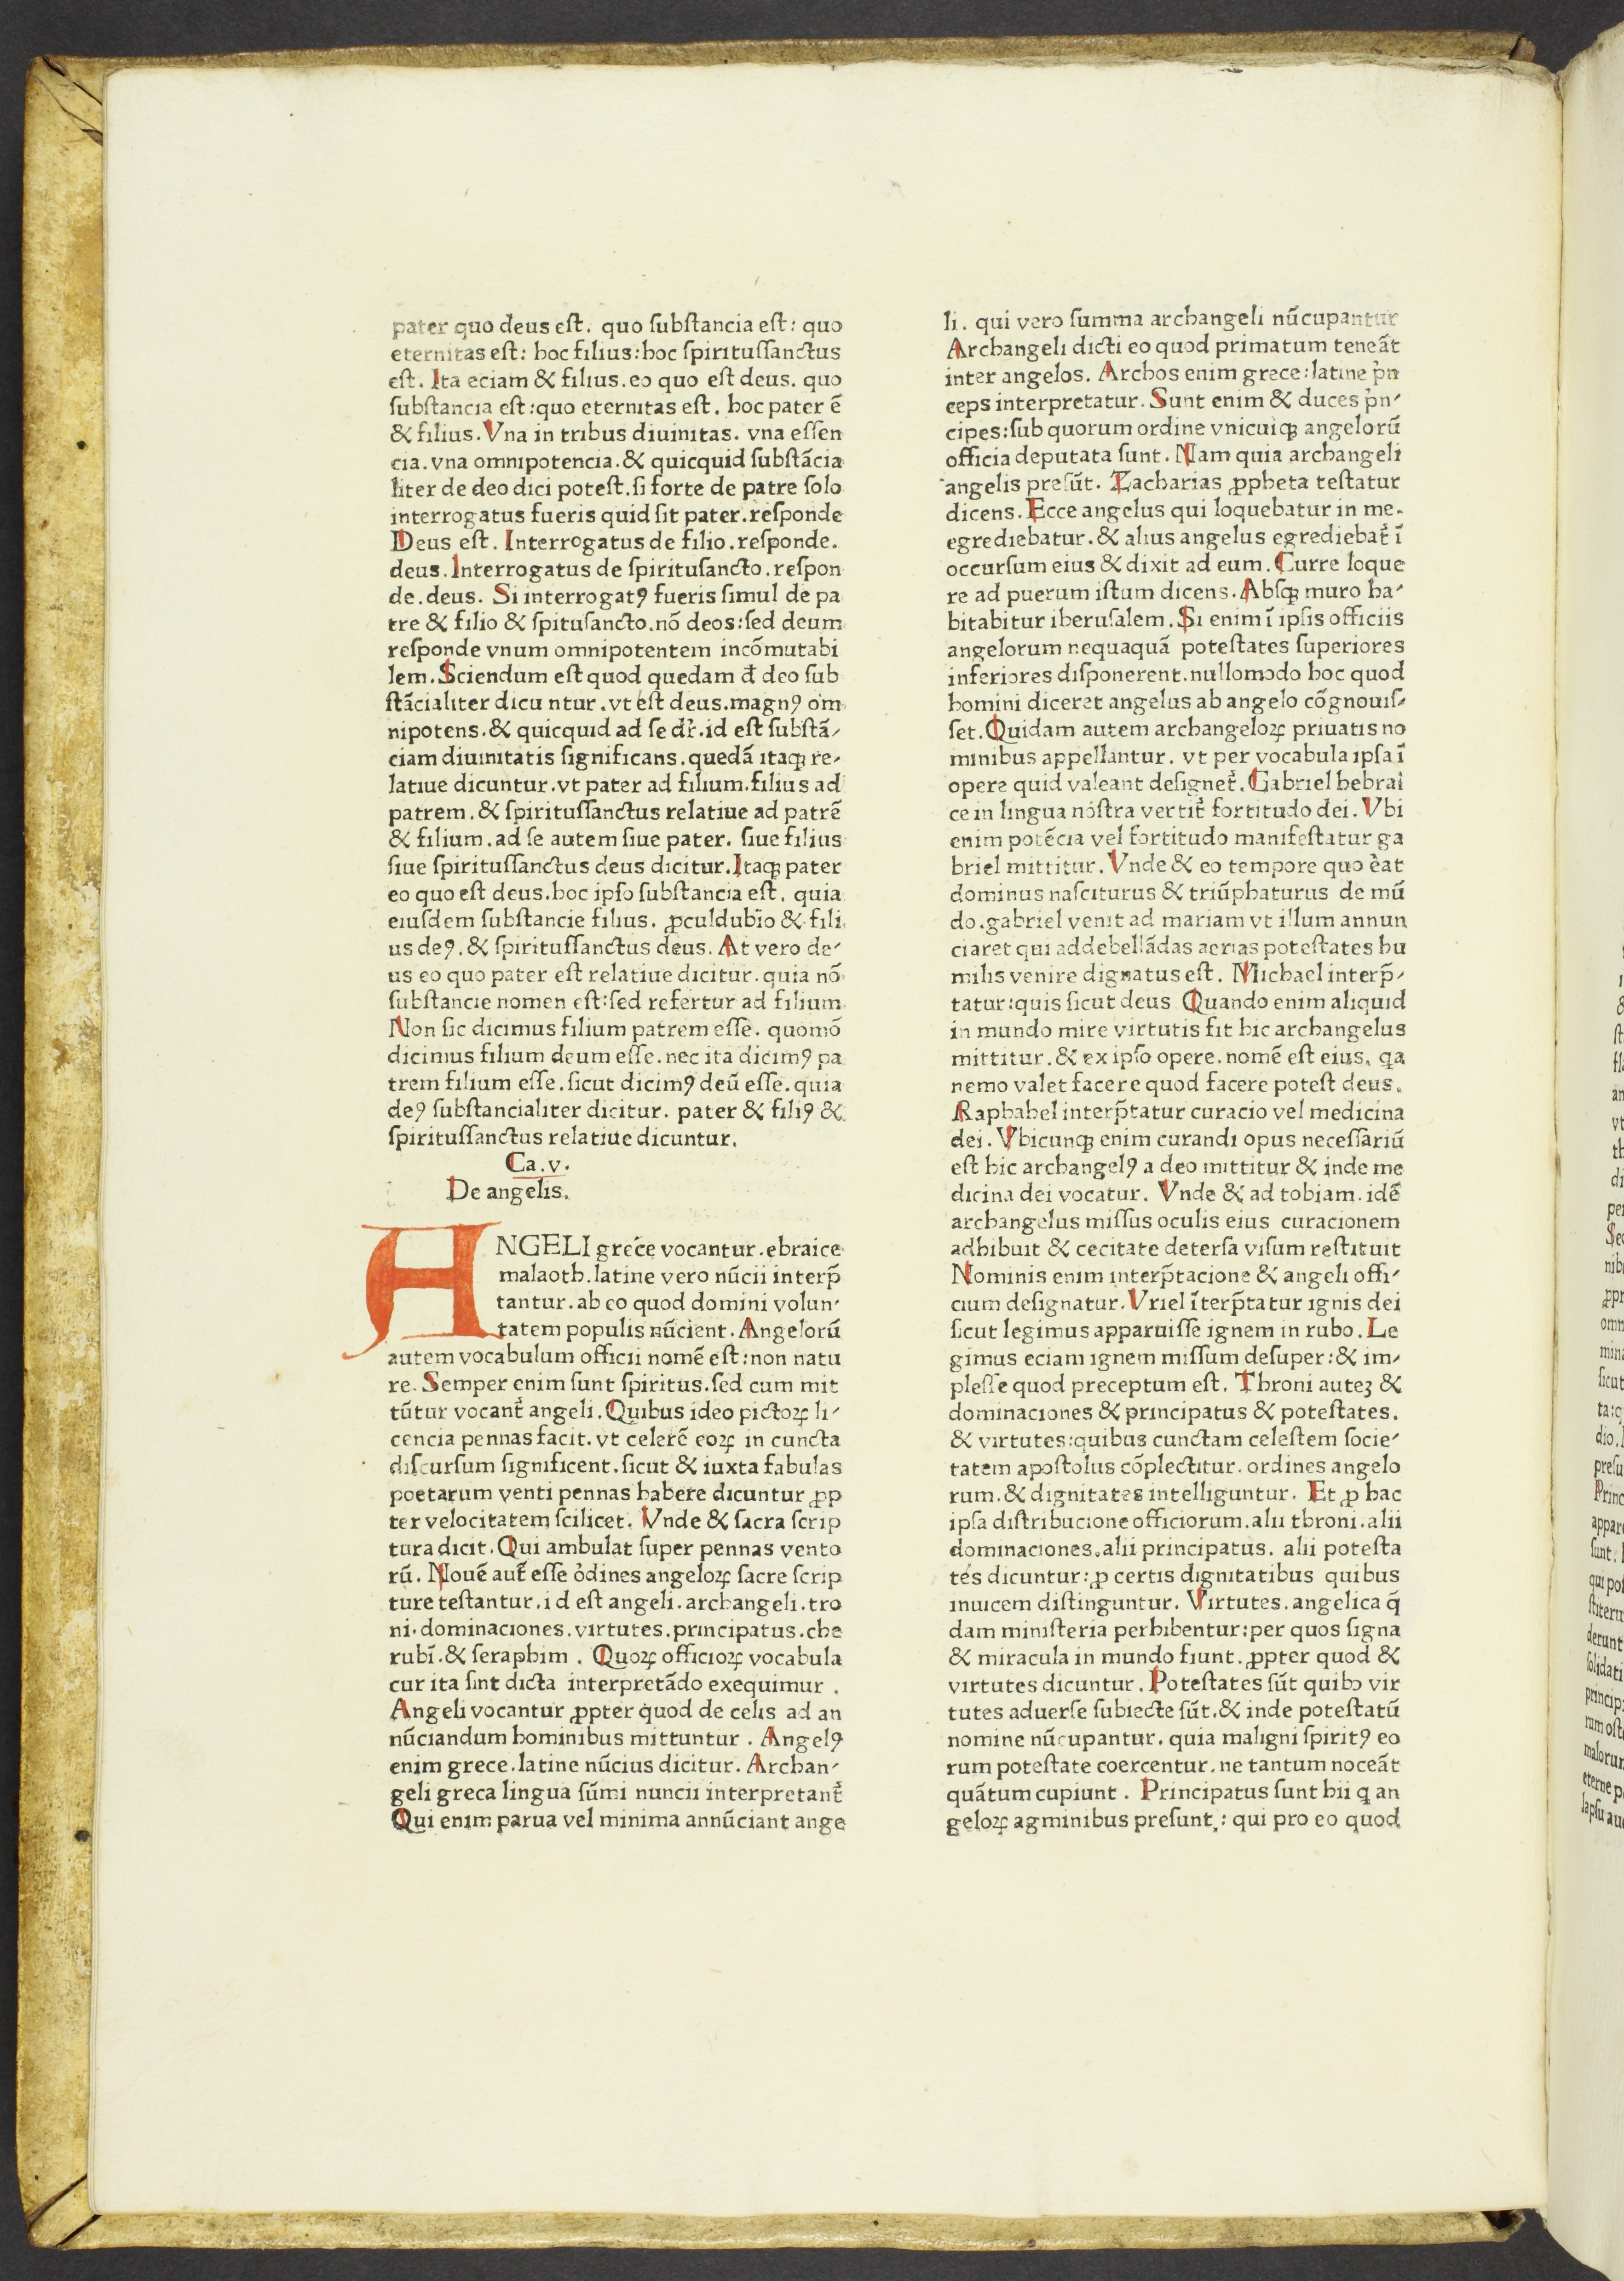 pater quo deus eſt. quo ſubſtancia eſt: quo
eternitas eſt: hoc filius:hoc ſpirituſſanctus
eſt. Ita eciam & filius.eo quo eſt deus. quo
ſubſtancia eſt:quo eternitas eſt. hoc pater ē
& filius.Vna in tribus diuinitas. vna eſſen
cia.vna omnipotencia.& quicquid ſubſtācia
liter de deo dici poteſt.ſi forte de patre ſolo
interrogatus fueris quid ſit pater.reſponde
Deus eſt. Interrogatus de filio.reſponde.
deus.Interrogatus de ſpirituſancto.reſpon
de.deus. Si interrogatꝰ fueris ſimul de pa
tre & filio & ſpituſancto.nō deos:ſed deum
reſponde vnum omnipotentem incōmutabi
lem.Sciendum eſt quod quedam đ deo ſub
ſtācialiter dicu ntur.vt eſt deus.magnꝰ om
nipotens.& quicquid ad ſe dr̄.id eſt ſubſtā⸗
ciam diuinitatis ſignificans.quedā itaqꝫ re⸗
latiue dicuntur.vt pater ad filium.filius ad
patrem.& ſpirituſſanctus relatiue ad patrē
& filium.ad ſe autem ſiue pater. ſiue filius
ſiue ſpirituſſanctus deus dicitur.Itaqꝫ pater
eo quo eſt deus.hoc ipſo ſubſtancia eſt. quia
eiuſdem ſubſtancie filius. ꝓculdubio & fili
us deꝰ.& ſpirituſſanctus deus. At vero de⸗
us eo quo pater eſt relatiue dicitur.quia nō
ſubſtancie nomen eſt:ſed refertur ad filium
Non ſic dicimus filium patrem eſſe. quomō
dicimus filium deum eſſe.nec ita dicimꝰ pa
trem filium eſſe.ſicut dicimꝰ deū eſſe.quia
deꝰ ſubſtancialiter dicitur. pater & filiꝰ &
ſpirituſſanctus relatiue dicuntur.
Ca.v.
De angelis.
ANGELI grece vocantur.ebraice
malaoth.latine vero nūcii interp̄
tantur.ab eo quod domini volun⸗
tatem populis nūcient.Angelorū
autem vocabulum officii nomē eſt:non natu
re.Semper enim ſunt ſpiritus.ſed cum mit
tūtur vocant᷑ angeli.Quibus ideo pictoꝝ li⸗
cencia pennas facit.vt celerē eoꝝ in cuncta
diſcurſum ſignificent.ſicut & iuxta fabulas
poetarum venti pennas habere dicuntur ꝓp
ter velocitatem ſcilicet. Vnde & ſacra ſcrip
tura dicit.Qui ambulat ſuper pennas vento
rū.Nouē aut̄ eſſe oͬdines angeloꝝ ſacre ſcrip
ture teſtantur.id eſt angeli.archangeli.tro
ni.dominaciones.virtutes.principatus.che
rubī.& ſeraphim . Quoꝝ officioꝝ vocabula
cur ita ſint dicta interpretādo exequimur .
Angeli vocantur ꝓpter quod de celis ad an
nūciandum hominibus mittuntur . Angelꝰ
enim grece.latine nūcius dicitur. Archan⸗
geli greca lingua ſūmi nuncii interpretant᷑
Qui enim parua vel minima annūciant ange
li. qui vero ſumma archangeli nūcupantur
Archangeli dicti eo quod primatum teneāt
inter angelos. Archos enim grece:latine pͥn
ceps interpretatur. Sunt enim & duces pͥn⸗
cipes:ſub quorum ordine vnicuiqꝫ angelorū
officia deputata ſunt. Nam quia archangeli
angelis preſūt. Zacharias ꝓpheta teſtatur
dicens.Ecce angelus qui loquebatur in me.
egrediebatur.& alius angelus egrediebat᷑ ī
occurſum eius & dixit ad eum.Curre loque
re ad puerum iſtum dicens.Abſqꝫ muro ha⸗
bitabitur iheruſalem.Si enim ī ipſis officiis
angelorum nequaquā poteſtates ſuperiores
inferiores diſponerent.nullomodo hoc quod
homini diceret angelus ab angelo cōgnouiſ⸗
ſet.Quidam autem archangeloꝝ priuatis no
minibus appellantur. vt per vocabula ipſa ī
opere quid valeant deſignet᷑.Gabriel hebrai
ce in lingua noſtra vertit᷑ fortitudo dei.Vbi
enim potēcia vel fortitudo manifeſtatur ga
briel mittitur.Vnde & eo tempore quo e᷑at
dominus naſciturus & triūphaturus de mū
do.gabriel venit ad mariam vt illum annun
ciaret qui addebellādas aerias poteſtates hu
milis venire dignatus eſt. Michael interp̄⸗
tatur:quis ſicut deus Quando enim aliquid
in mundo mire virtutis fit hic archangelus
mittitur.& ex ipſo opere.nomē eſt eius. qa
nemo valet facere quod facere poteſt deus.
Raphahel interp̄tatur curacio vel medicina
dei.Vbicunqꝫ enim curandi opus neceſſariū
eſt hic archangelꝰ a deo mittitur & inde me
dicina dei vocatur. Vnde & ad tobiam.idē
archangelus miſſus oculis eius curacionem
adhibuit & cecitate deterſa viſum reſtituit
Nominis enim interp̄tacione & angeli offi⸗
cium deſignatur.Vriel īterp̄tatur ignis dei
ſicut legimus apparuiſſe ignem in rubo.Le
gimus eciam ignem miſſum deſuper:& im⸗
pleſſe quod preceptum eſt. Throni auteꝫ &
dominaciones & principatus & poteſtates.
& virtutes:quibus cunctam celeſtem ſocie⸗
tatem apoſtolus cōplectitur.ordines angelo
rum.& dignitates intelliguntur. Et ꝓ hac
ipſa diſtribucione officiorum.alii throni.alii
dominaciones.alii principatus. alii poteſta
tes dicuntur:ꝓ certis dignitatibus quibus
inuicem diſtinguntur. Virtutes.angelica q̄
dam miniſteria perhibentur:per quos ſigna
& miracula in mundo fiunt.ꝓpter quod &
virtutes dicuntur.Poteſtates ſūt quibꝫ vir
tutes aduerſe ſubiecte ſūt.& inde poteſtatū
nomine nūcupantur.quia maligni ſpiritꝰ eo
rum poteſtate coercentur.ne tantum noceāt
quātum cupiunt . Principatus ſunt hii ꝗ an
geloꝝ agminibus preſunt.: qui pro eo quod